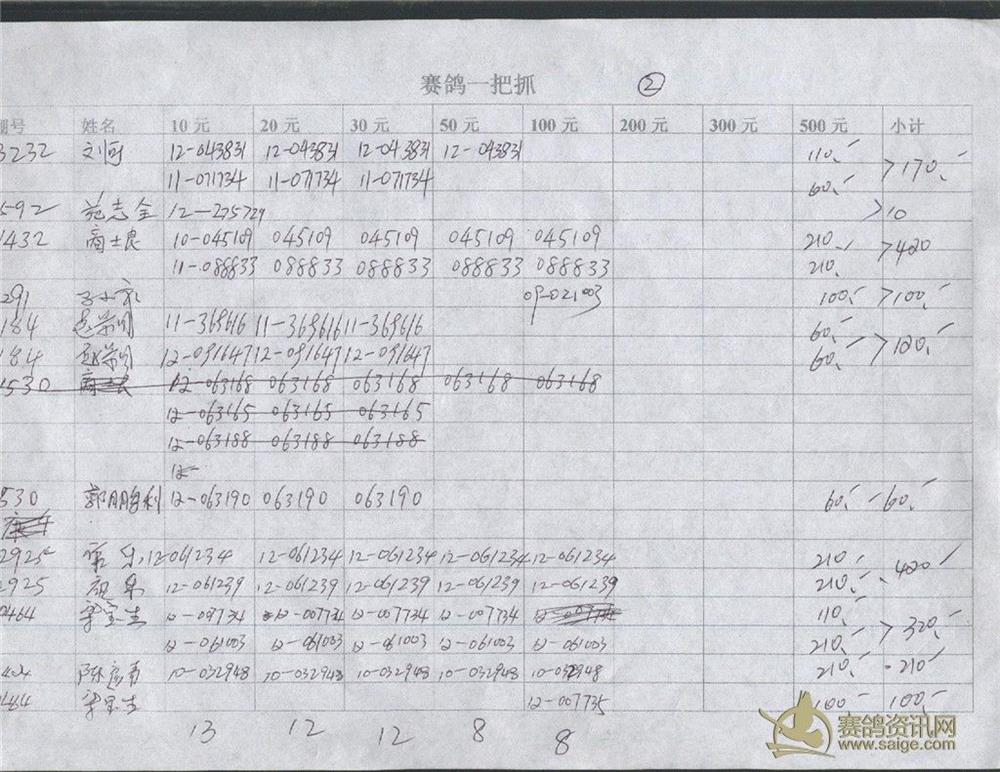 赛鸽一把抓 ②
棚号 姓名 10元 20元 30元 50元 100元 200元 300元 500元 小计
3232 12-043831 12-043831 12-043831 12-043831 110.- >170.-
11-071734 11-071734 11-071734 60.-
592 范志全 12-275729 >10
1432 商士良 10-045109 045109 045109 045109 045109 210.- >420
11-088833 088833 088833 088833 088833 210.
291 09-021003 100.- >100.-
184 11-369616 11-369616 11-369616 60.- >120.-
184 12-091647 12-091647 12-091647 60.-
530 12-063168 063168 063168 063168 063168
12-063165 063165 063165
12-063188 063188 063188
12-
530 郭朋利 12-063190 063190 063190 60.- -60.-
2925 12-061234 12-061234 12-061234 12-061234 12-061234 210.- 420.-
2925 12-061239 12-061239 12-061239 12-061239 12-061239 210.-
0464 12-007734 12-007734 12-007734 12-007734 110.- >320.-
12-061003 12-061003 12-061003 12-061003 12-061003 210.-
10-032948 10-032948 10-032948 10-032948 10-032948 210.- -210.-
12-007735 100 100.-
13 12 12 8 8
赛鸽资讯网
www.saige.com